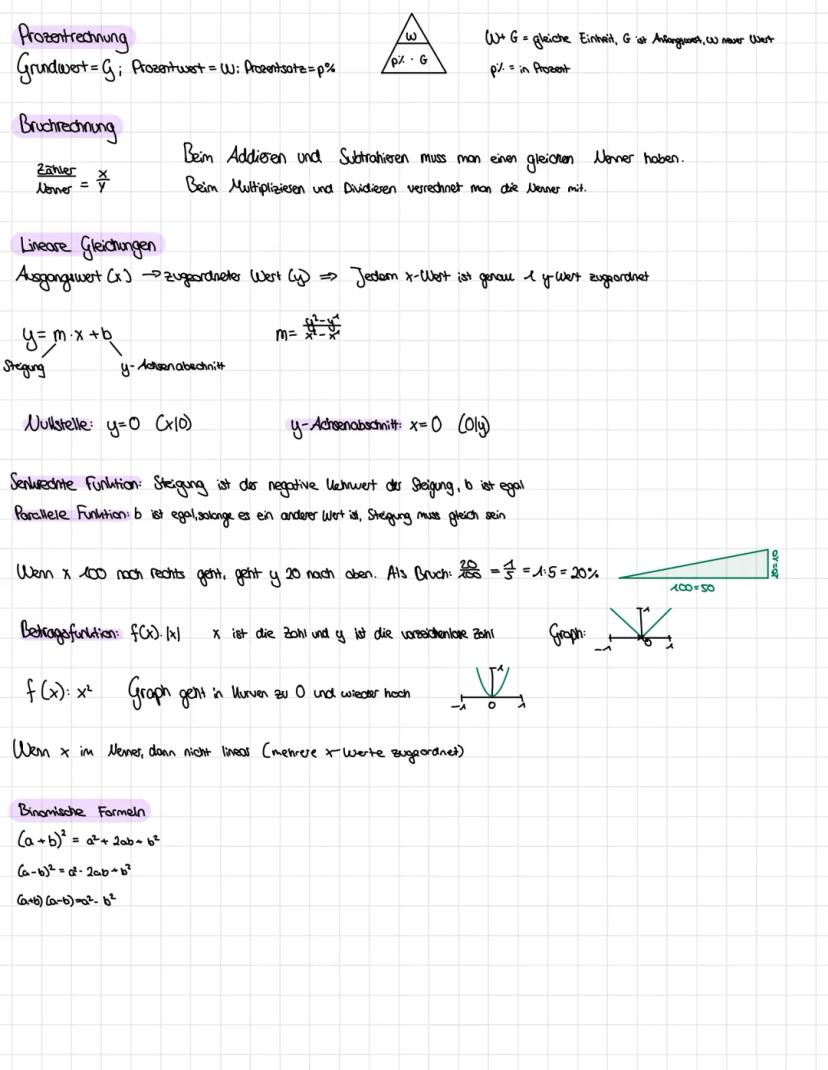 Prozentrechnung
Grundwert = G; Prozentwert = W; Prozentsatz = p%
W
p% · G
W + G = gleiche Einheit, G ist Anfangswert, W neuer Wert
p% = in Prozent
Bruchrechnung
Zähler
Nenner = x/y
Beim Addieren und Subtrahieren muss man einen gleichen Nenner haben.
Beim Multiplizieren und Dividieren verrechnet man die Nenner mit.
Lineare Gleichungen
Ausgangswert (x) → zugeordneter Wert (y) ⇒ Jedem x-Wert ist genau 1 y-Wert zugeordnet
y = m · x + b
m = y²-y¹/x²-x¹
Steigung
y-Achsenabschnitt
Nullstelle: y=0 (x|0)
y-Achsenabschnitt: x=0 (0|y)
Senkrechte Funktion: Steigung ist der negative Kehrwert der Steigung, b ist egal
Parallele Funktion: b ist egal, solange es ein anderer Wert ist, Steigung muss gleich sein
Wenn x 100 nach rechts geht, geht y 20 nach oben. Als Bruch: 20/100 = 1/5 = 1:5 = 20%
100=50
20=10
Betragsfunktion: f(x): |x| x ist die Zahl und y ist die vorzeichenlose Zahl Graph:
1
-1 0 1
f(x): x² Graph geht in Kurven zu 0 und wieder hoch
1
-1 0 1
Wenn x im Nenner, dann nicht linear (mehrere x-Werte zugeordnet)
Binomische Formeln
(a+b)² = a² + 2ab + b²
(a-b)² = a² - 2ab + b²
(a+b)(a-b)=a²-b²